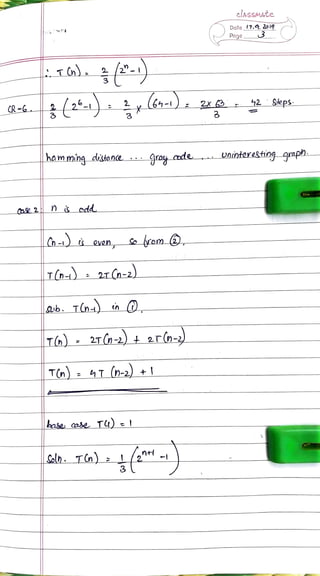 classmate
Date 17.9.2019
Page 3
∴ T(n) = 2/3 (2ⁿ - 1)
CR-6. 2/3 (2⁶-1) = 2/3 × (64-1) = 2×63/3 = 42 Steps.
hamming distance ... gray code ... uninteresting graph.
case 2: n is odd
(n-1) is even, so from ②,
T(n-1) = 2T(n-2)
Sub. T(n-1) in ①,
T(n) = 2T(n-2) + 2T(n-2)
T(n) = 4T(n-2) + 1
base case T(1) = 1
Soln. T(n) = 1/3 (2ⁿ⁺¹ - 1)